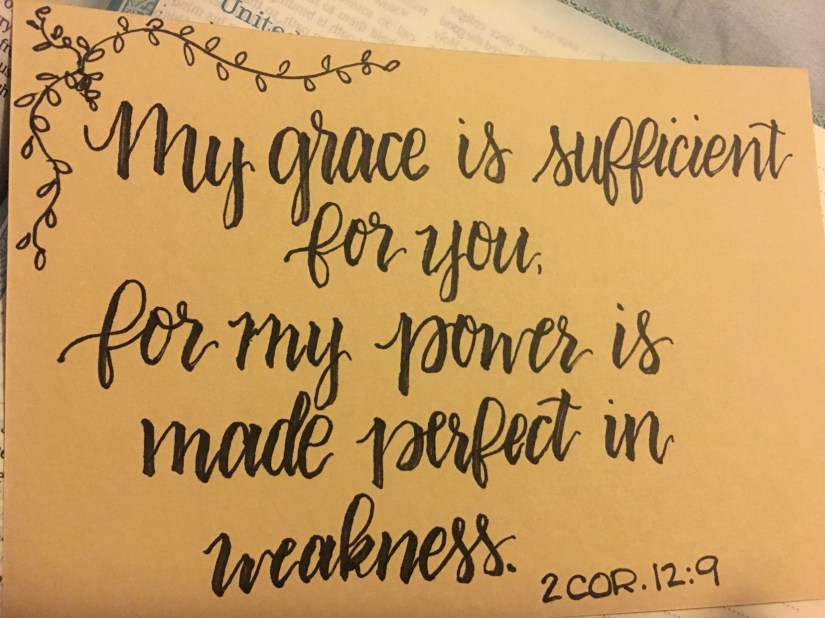 Unite
My grace is sufficient
for you,
for my power is
made perfect in
weakness.
2 COR. 12:9